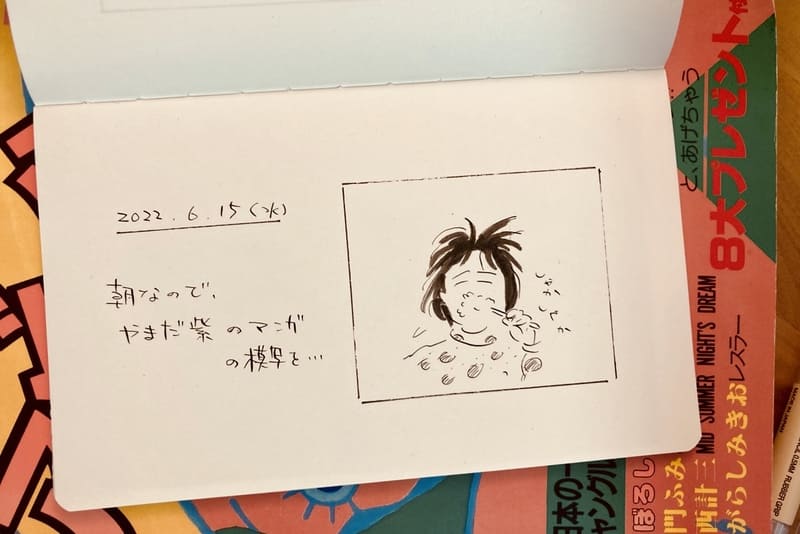 2022.6.15(水)
朝なので、
やまだ紫のマンガ
の模写を…
しゃか
しゃか
と、あげちゃう
8大プレゼント
MID SUMMER NIGHT'S DREAM
レスラー
がらしみきお
西計三
門ふみ
ぼろし
日本の一
ャングル
MADE IN JAPAN
0.5MM RUBBER GRIP